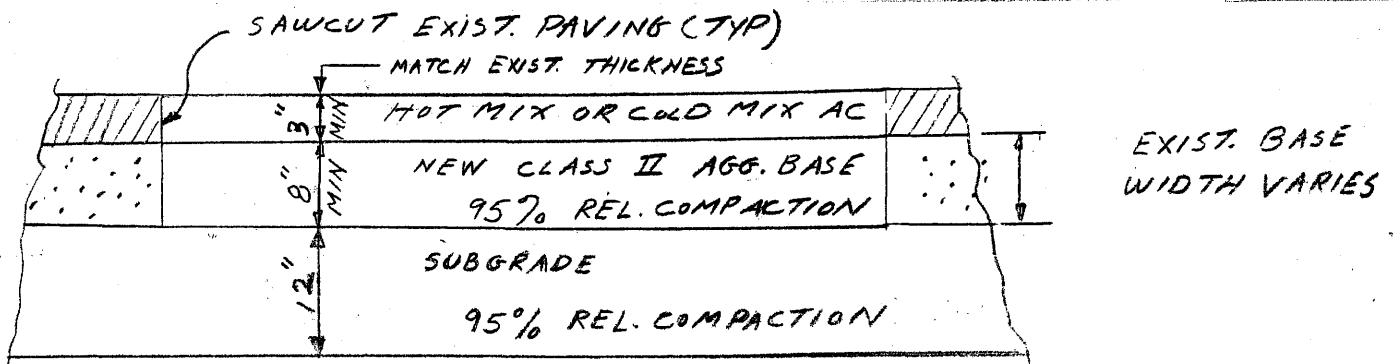 SAWCUT EXIST. PAVING (TYP)
MATCH EXIST. THICKNESS
3" MIN
HOT MIX OR COLD MIX AC
8" MIN
NEW CLASS II AGG. BASE
95% REL. COMPACTION
EXIST. BASE
WIDTH VARIES
12"
SUBGRADE
95% REL. COMPACTION